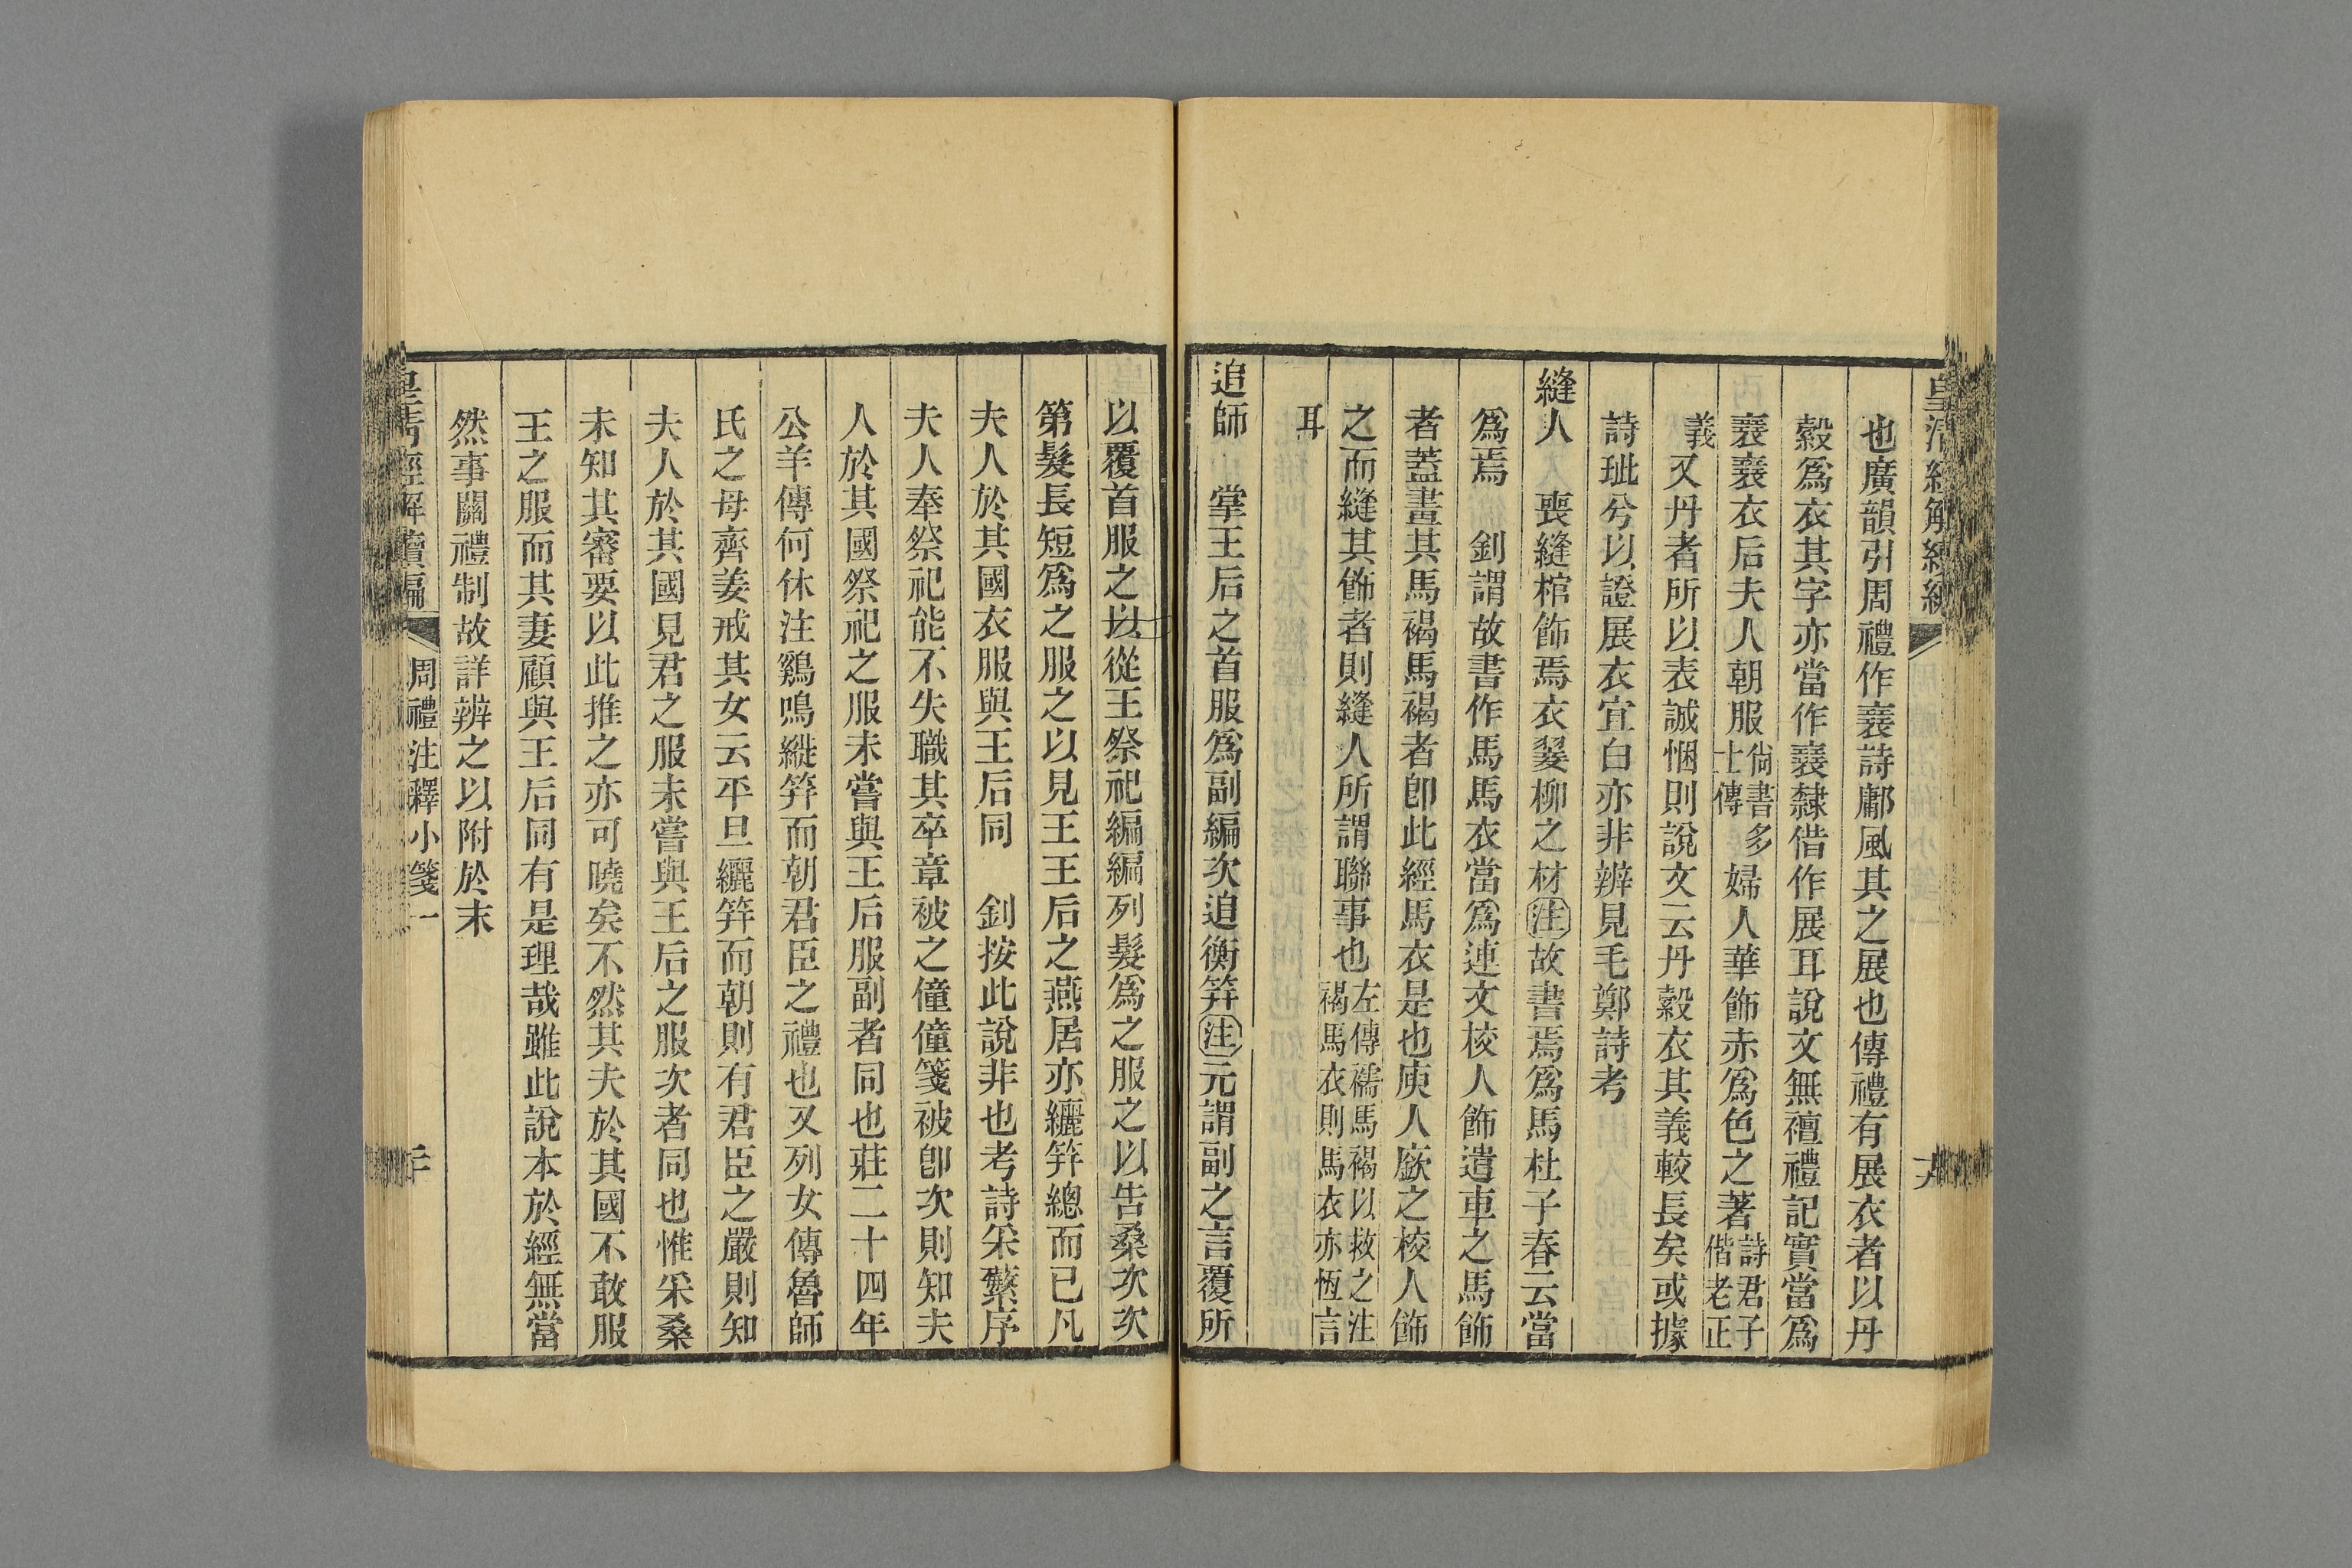 也廣韻引周禮作襢詩鄘風其之展也傳禮有展衣者以丹
縠爲衣其字亦當作襢隸借作展耳說文無襢禮記實當爲
襢襢衣后夫人朝服尙書多士傳婦人華飾赤爲色之著詩君子偕老正
義又丹者所以表誠悃則說文云丹縠衣其義較長矣或據
詩玼兮以證展衣宜白亦非辨見毛鄭詩考
縫人 喪縫棺飾焉衣翣柳之材注故書焉爲馬杜子春云當
爲焉 釗謂故書作馬馬衣當爲連文校人飾遣車之馬飾
者蓋畫其馬褐馬褐者卽此經馬衣是也庾人廞之校人飾
之而縫其飾者則縫人所謂聯事也左傳襦馬褐以救之注褐馬衣則馬衣亦恆言
耳
追師 掌王后之首服爲副編次追衡筓注元謂副之言覆所
以覆首服之以從王祭祀編編列髮爲之服之以告桑次次
第髮長短爲之服之以見王王后之燕居亦纚筓總而已凡
夫人於其國衣服與王后同 釗按此說非也考詩采蘩序
夫人奉祭祀能不失職其卒章被之僮僮箋被卽次則知夫
人於其國祭祀之服未嘗與王后服副者同也莊二十四年
公羊傳何休注鷄鳴縰筓而朝君臣之禮也又列女傳魯師
氏之母齊姜戒其女云平旦纚筓而朝則有君臣之嚴則知
夫人於其國見君之服未嘗與王后之服次者同也惟采桑
未知其審要以此推之亦可曉矣不然其夫於其國不敢服
王之服而其妻顧與王后同有是理哉雖此說本於經無當
然事關禮制故詳辨之以附於末
皇清經解續編 周禮注釋小箋一